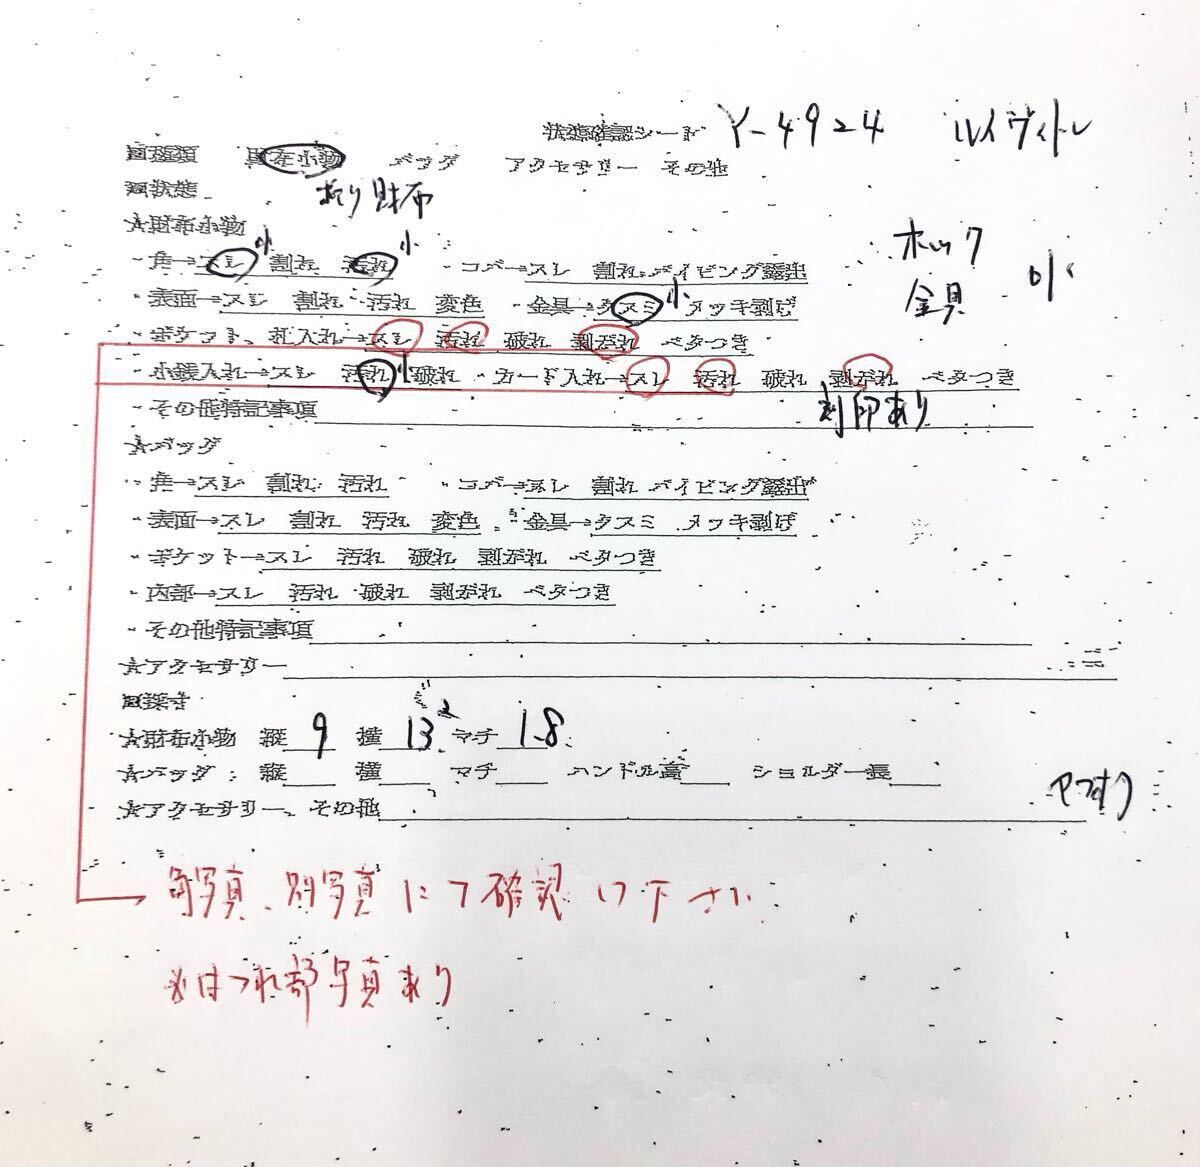 状態確認シード Y-4924 ルイヴィトン
□種類 財布小物 バッグ アクセサリー その他
□状態 折り財布
☆財布小物
・角→スレ小 割れ 汚れ小 ・コバ→スレ 割れ パイピング露出 ホック
・表面→スレ 割れ 汚れ 変色 ・金具→クスミ小 メッキ剥げ 金具 小
・ポケット、札入れ→スレ 汚れ 破れ 剥がれ ベタつき
・小銭入れ→スレ 汚れ小 破れ ・カード入れ→スレ 汚れ 破れ 剥がれ ベタつき
・その他特記事項 刻印あり
☆バッグ
・角→スレ 割れ 汚れ ・コバ→スレ 割れ パイピング露出
・表面→スレ 割れ 汚れ 変色 ・金具→クスミ メッキ剥げ
・ポケット→スレ 汚れ 破れ 剥がれ ベタつき
・内部→スレ 汚れ 破れ 剥がれ ベタつき
・その他特記事項
☆アクセサリー
□採寸
☆財布小物 縦 9 横 13.2 マチ 1.8
☆バッグ:縦 横 マチ ハンドル高 ショルダー長
☆アクセサリー、その他 ヤフオク
角写真、別写真にて確認して下さい
※ほつれ部写真あり